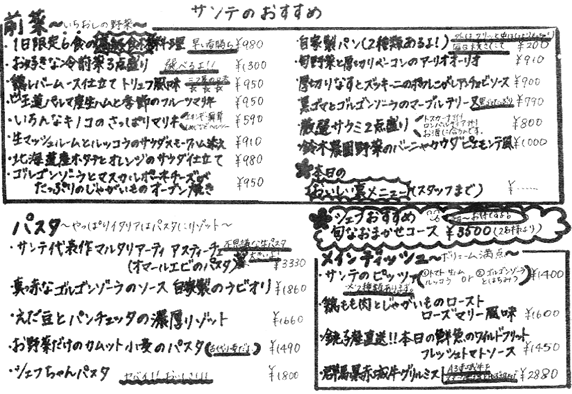 サンテのおすすめ
前菜〜いちおしの野菜〜
・1日限定6食の 料理 早い者勝ち ¥980
・お好きな冷前菜3点盛り 選べるよ!! ¥1300
・鶏レバームース仕立てトリュフ風味 ¥950
・王道パルマ産生ハムと季節のフルーツマリネ ¥950
・いろんなキノコのさっぱりマリネ ¥590
・生マッシュルームとレッコラのサラダスモークハム添え ¥910
・北海道産ホタテとオレンジのサラダ仕立て ¥980
・ゴルゴンゾーラとマスカルポーネチーズが
たっぷりのじゃがいものオーブン焼き ¥950
・自家製パン(2種類あるよ!) 毎日焼きたて ¥200
・旬野菜と厚切りベーコンのアーリオオーリオ ¥910
・厚切りなすとズッキーニのボカレこがしアンチョビソース ¥900
・黒ゴマとゴルゴンゾーラのマーブルテリーヌ ¥790
・厳選サラミ2点盛り ¥800
・鈴木農園野菜のバーニャカウダピエモンテ風 ¥1000
本日の
おいしい裏メニュー(スタッフまで) ¥……
シェフおすすめ
旬なおまかせコース ¥3500(2名様より)
パスタ〜やっぱりイタリアはパスタにリゾット〜
・サンテ代表作マルタリアーティ アスティーチェ 不思議な生パスタ
(オマールエビのパスタ) ¥3330
・真っ赤なゴルゴンゾーラのソース 自家製のラビオリ ¥1860
・えだ豆とパンチェッタの濃厚リゾット ¥1660
・お野菜だけのカムット小麦のパスタ (古代小麦だよ) ¥1490
・シェフちゃんパスタ ヤバイ!!おいしい!!! ¥1800
メインディッシュ〜ボリューム満点〜
・サンテのピッツァ ①トマト ルッコラ or ②ゴルゴンゾーラとはちみつ ¥1400
・鶏もも肉とじゃがいものロースト
ローズマリー風味 ¥1600
・銚子産直送!!本日の鮮魚のワイルドフリット
フレッシュトマトソース ¥1450
・群馬県赤城牛グリルミスト ¥2880